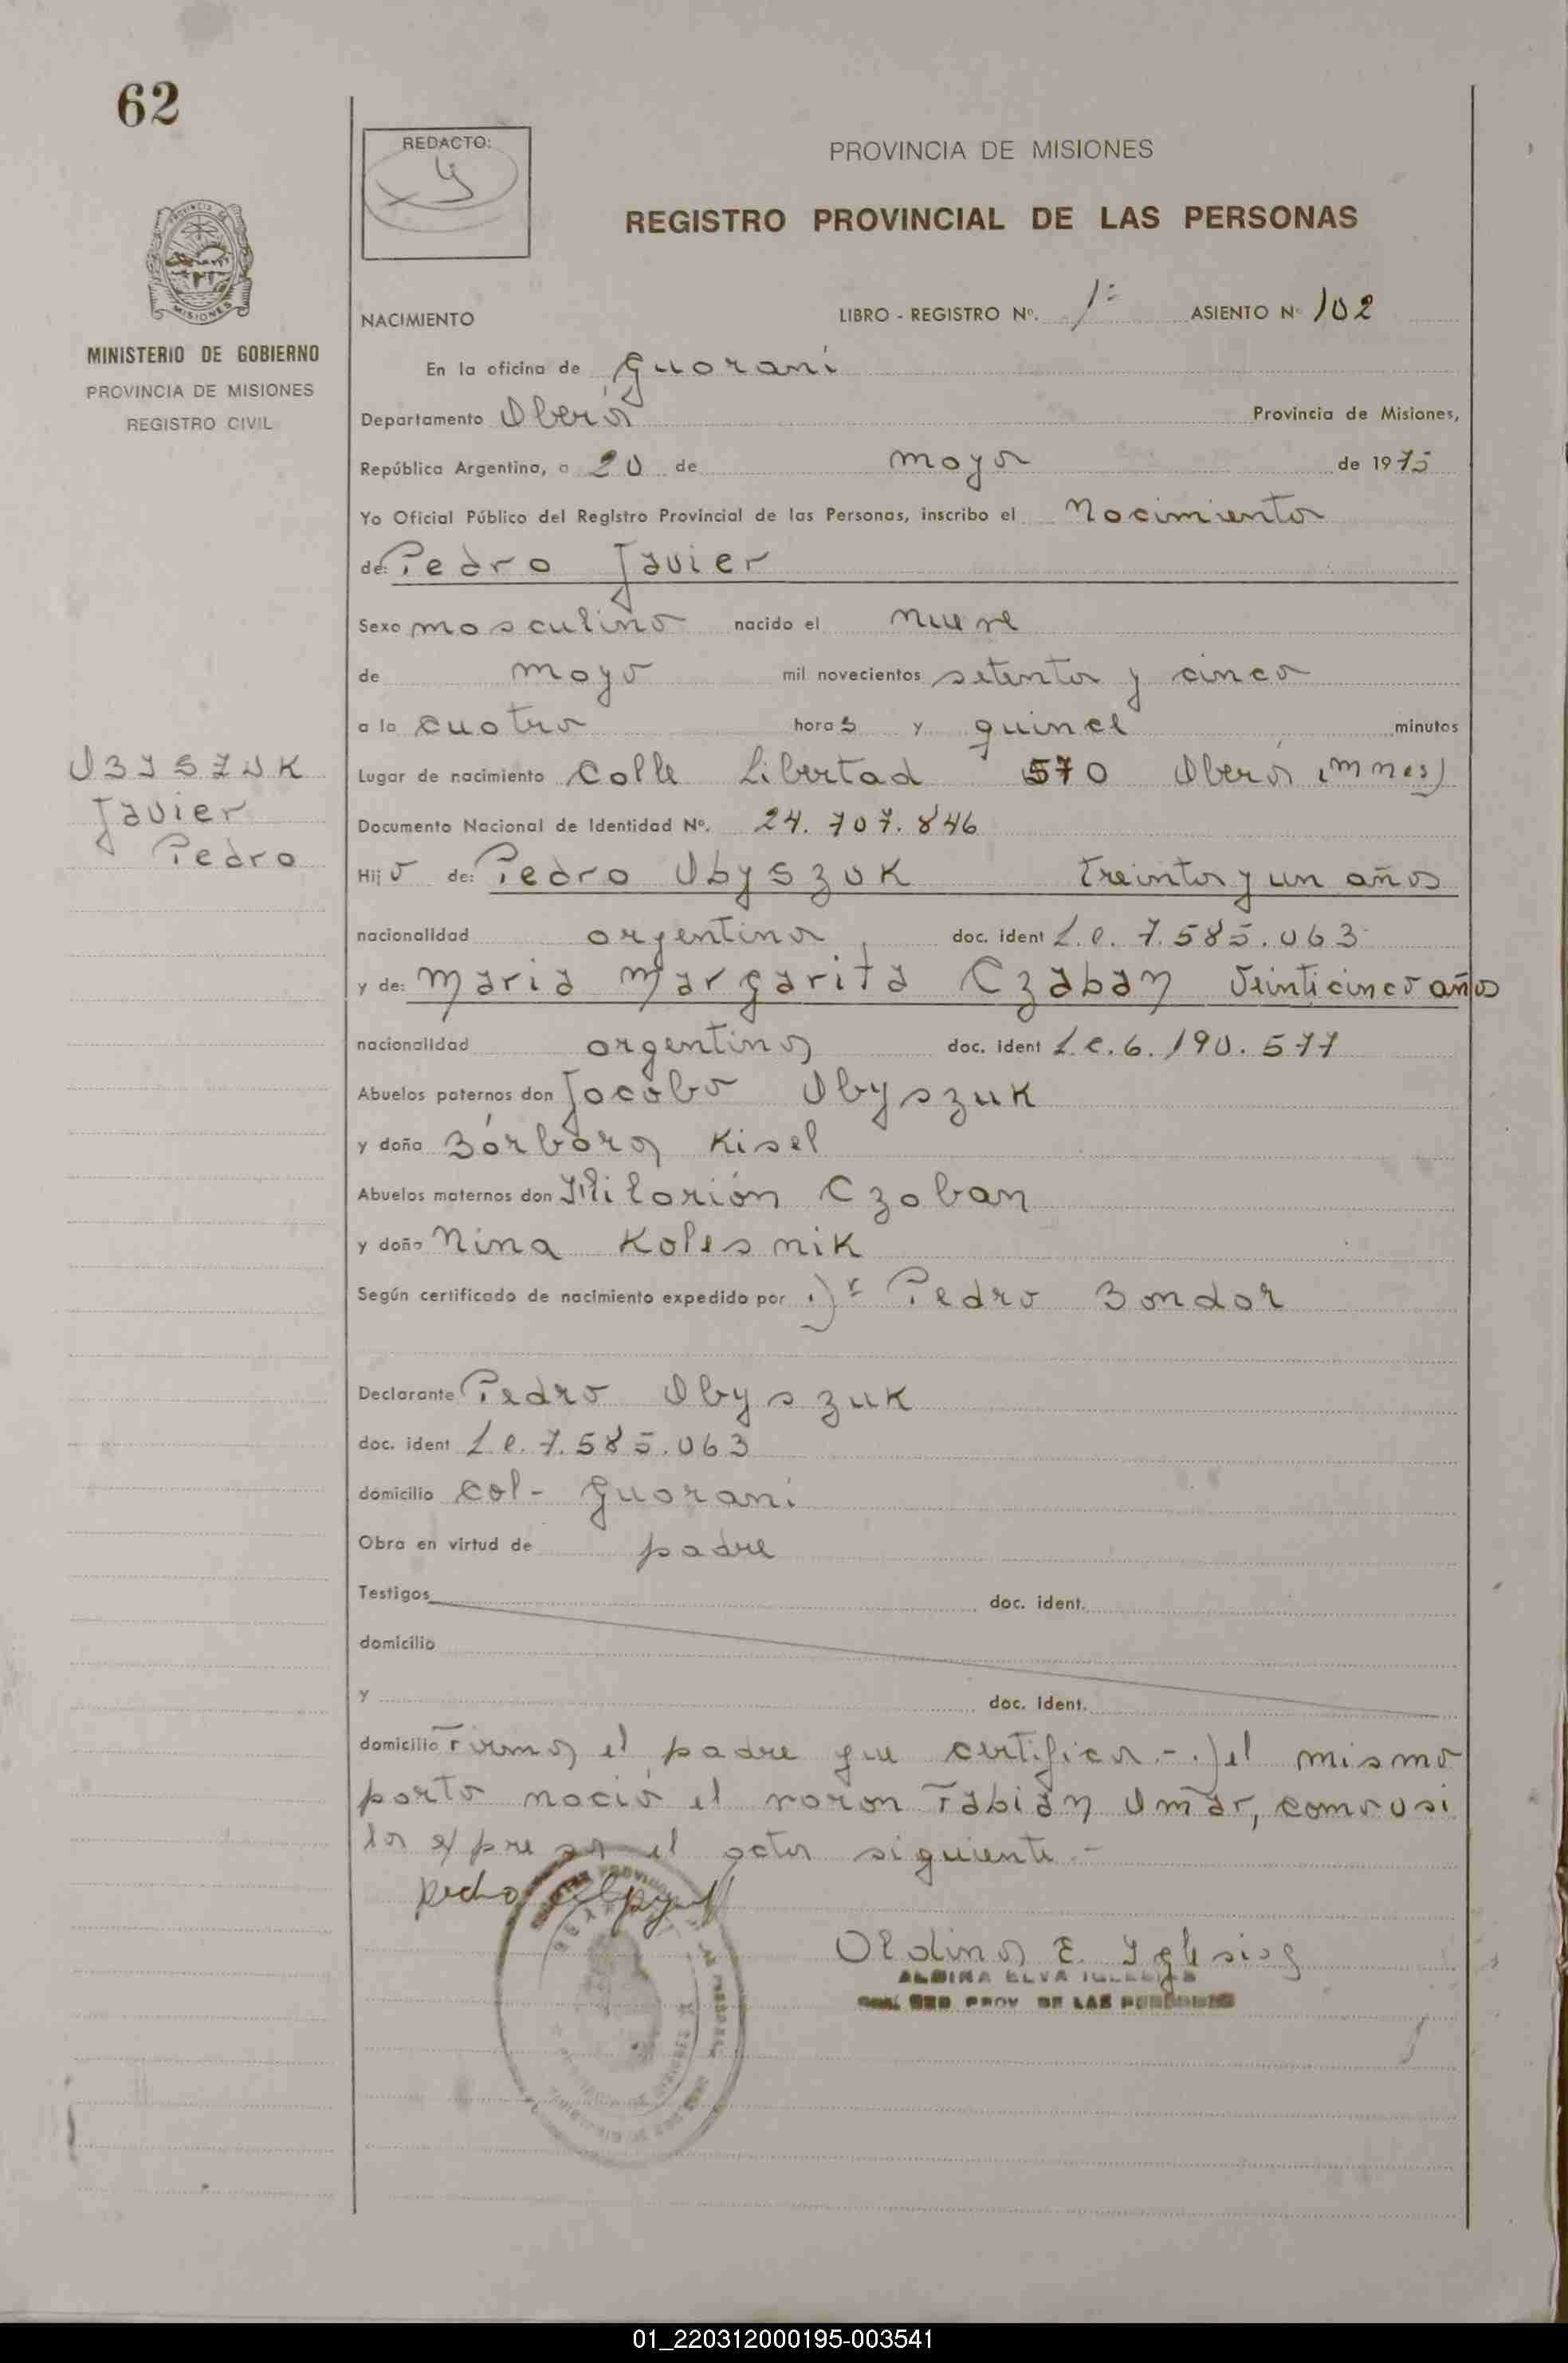 62
REDACTO:
PROVINCIA DE MISIONES
REGISTRO PROVINCIAL DE LAS PERSONAS
MISIONES
MINISTERIO DE GOBIERNO
PROVINCIA DE MISIONES
REGISTRO CIVIL
NACIMIENTO LIBRO - REGISTRO Nº. 1º ASIENTO Nº 102
En la oficina de Guaraní
Departamento Oberá Provincia de Misiones,
República Argentina, a 20 de mayo de 1975
Yo Oficial Público del Registro Provincial de las Personas, inscribo el Nacimiento
de: Pedro Javier
Sexo masculino nacido el nueve
de mayo mil novecientos setenta y cinco
a la cuatro horas y quince minutos
OBYSZUK
Javier
Pedro
Lugar de nacimiento Calle Libertad 570 Oberá (Mnes)
Documento Nacional de Identidad Nº. 24.707.846
Hijo de: Pedro Obyszuk treinta y un años
nacionalidad argentina doc. ident L.e. 7.585.063
y de: Maria Margarita Czaban Veinticinco años
nacionalidad argentina doc. ident L.c. 6.190.577
Abuelos paternos don Jacobo Obyszuk
y doña Bárbara Kisel
Abuelos maternos don Hilarión Czaban
y doña Nina Kolesnik
Según certificado de nacimiento expedido por Dr Pedro Bondar
Declarante Pedro Obyszuk
doc. ident L e. 7.585.063
domicilio Col- Guarani
Obra en virtud de padre
Testigos doc. ident.
domicilio
y doc. ident.
domicilio Firma el padre que certifica.- Del mismo
parto nació el varon Fabián Omar, como asi
lo expresa el acta siguiente.-
Pedro
Aldina E. Iglesias
ALDINA ELVA IGLESIAS
REG. PROV. DE LAS PERSONAS
01_220312000195-003541